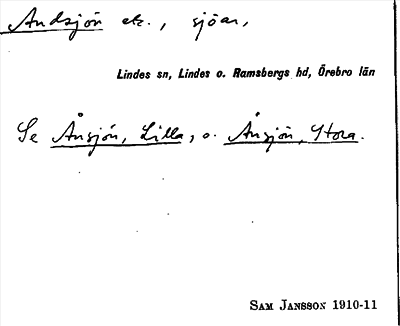 Andsjön etc., sjöar,
Lindes sn, Lindes o. Ramsbergs hd, Örebro län
Se Ånsjön, Lilla, o. Ånsjön, Stora.
Sam Jansson 1910-11